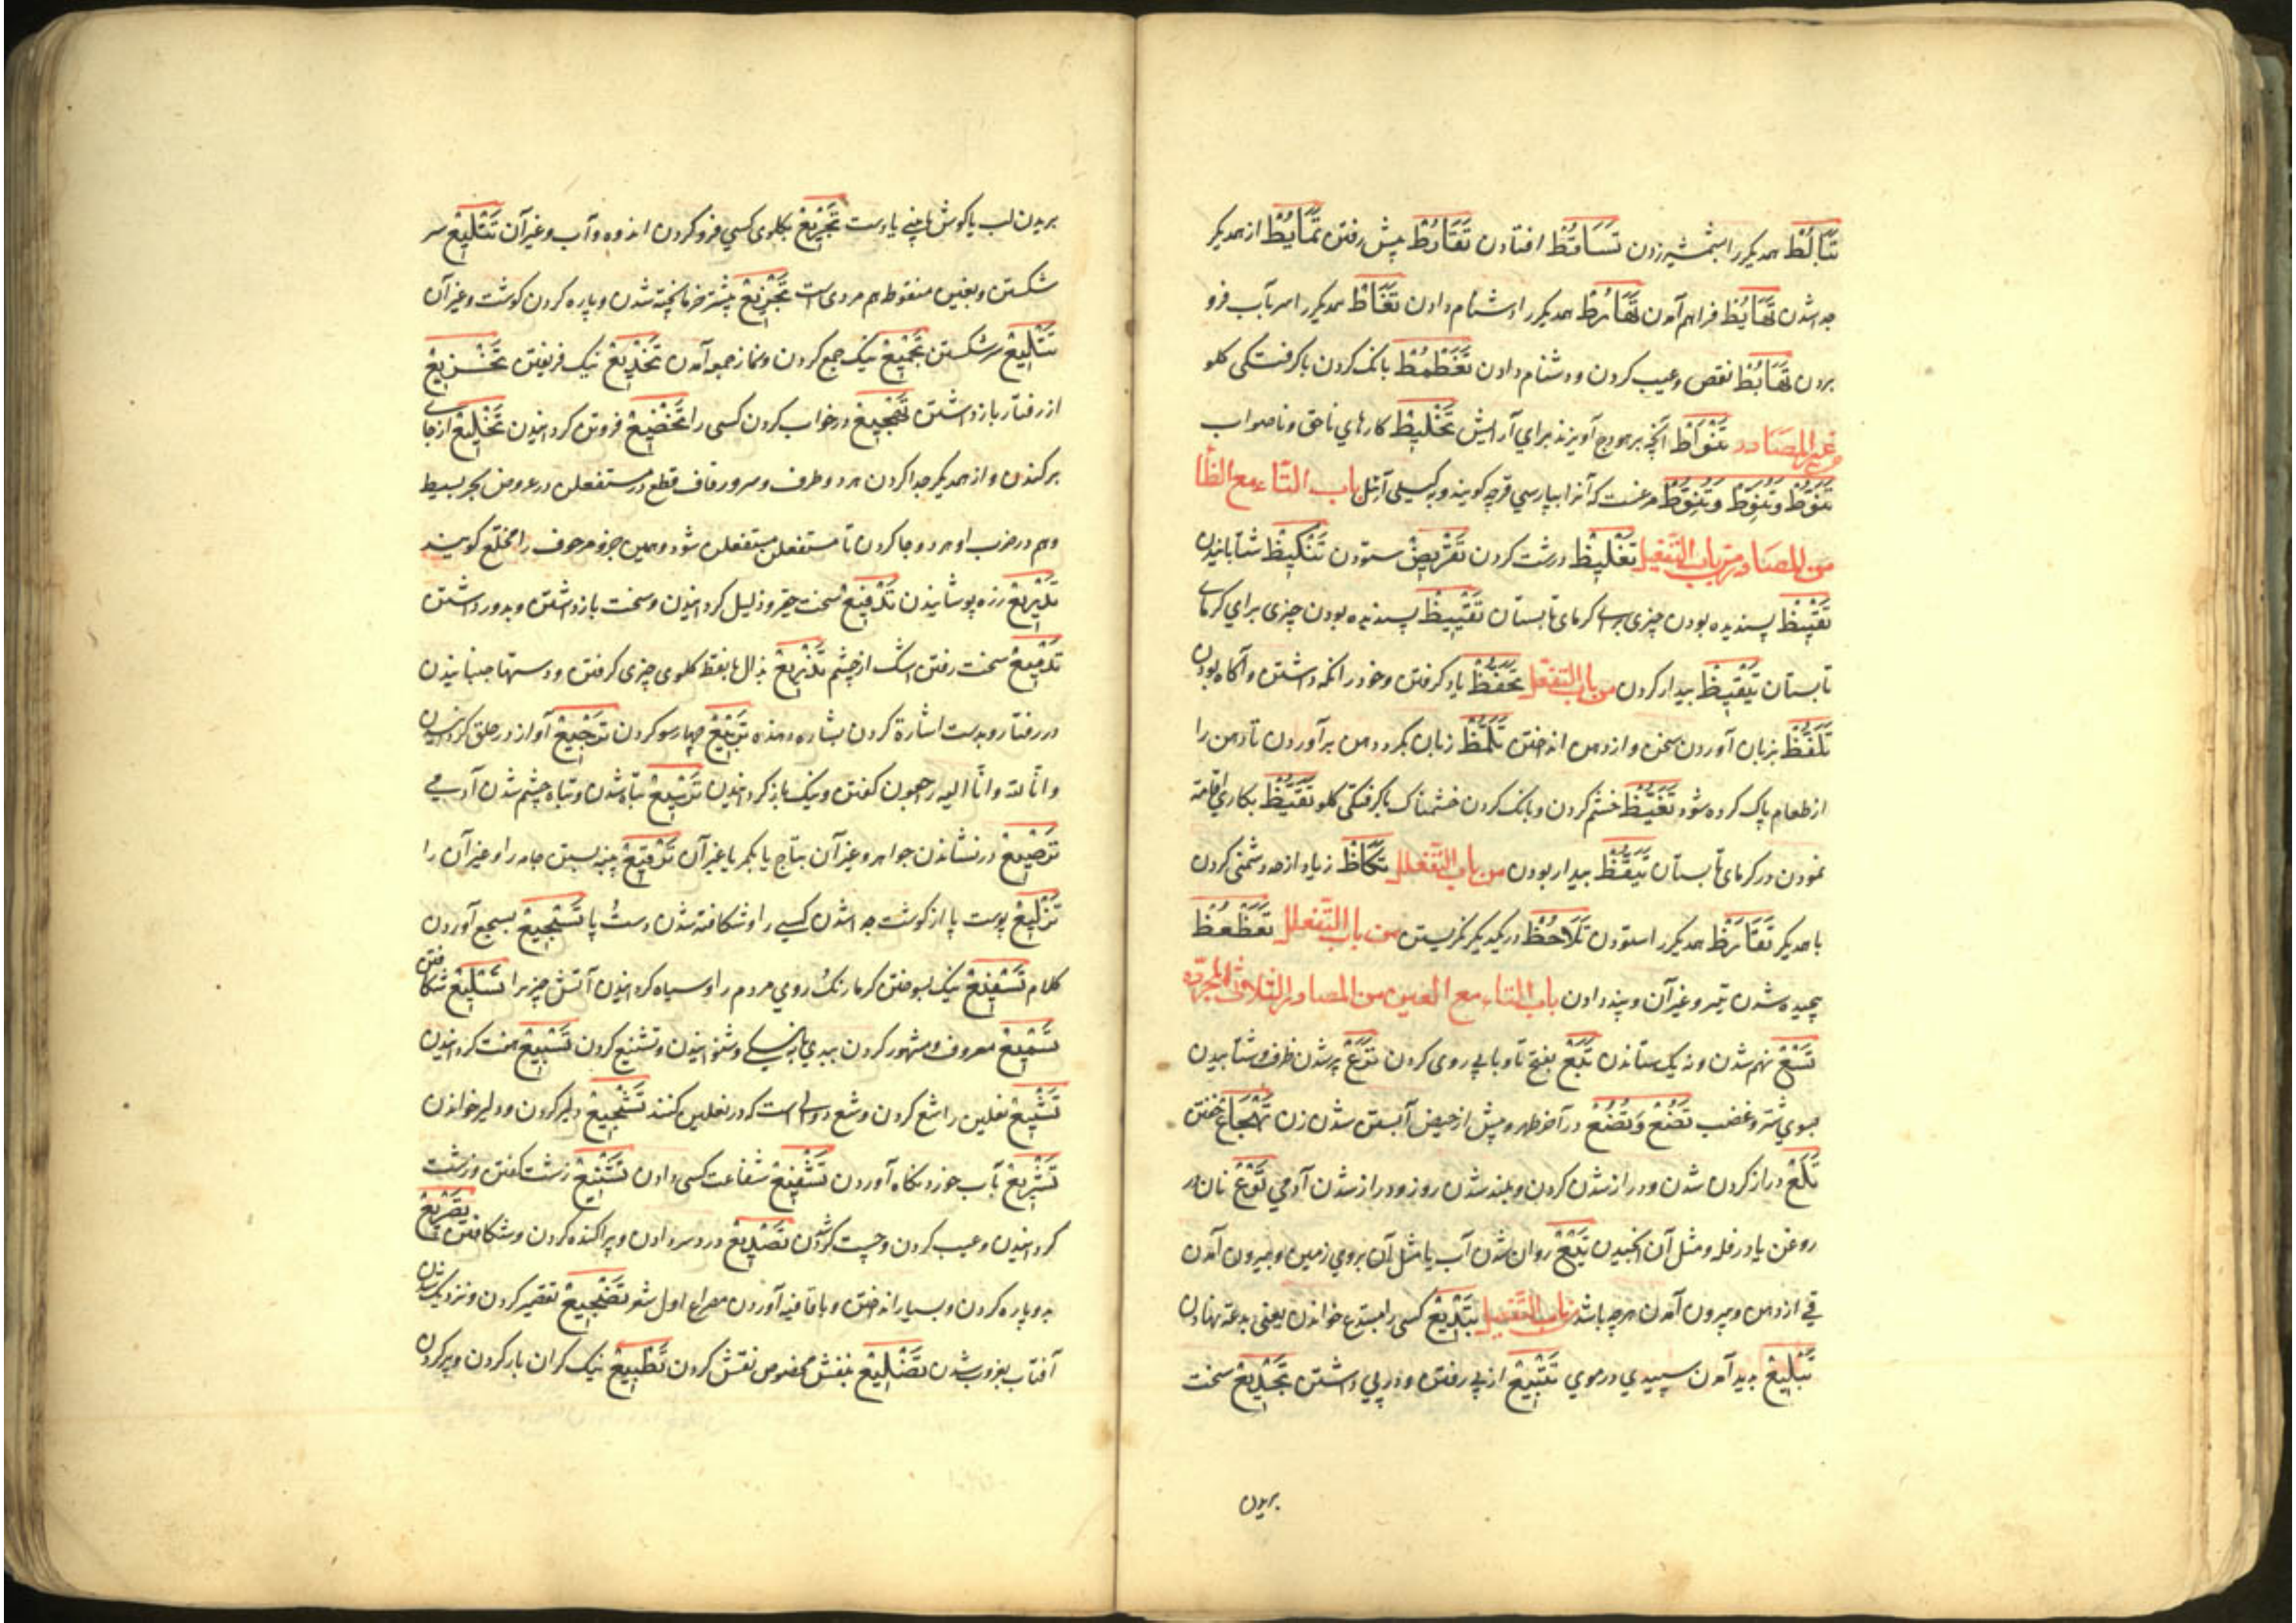 تَبَالُط همدیکر را بشمشیر زدن تَسَاقُط افتادن تَفَارُط پیش رفتن تَمَايُط از همدیکر
جدا شدن تَهَايُط فراهم آمدن تَهَارُط همدیکر را دشنام دادن تَغَاطّ همدیکر را سر بآب فرو
بردن تَهَابُط نقص و عیب کردن و دشنام دادن تَغَطْمُط بانک کردن با کرفتکی کلو
من غیر المصادر تَنْوَاط آنچه بر هودج آویزند برای آرایش تَخْلِيط کارهای ناحق و ناصواب
تَنَوُّط وَتُنَوِّط وَتَنَوُّط مرغیست که آنرا بپارسی کویند باب التاء مع الظا
من المصادر من باب التفعیل تَغْلِيظ درشت کردن تَقْرِيض ستودن تَنْكِيظ شتابانیدن
تَقْيِيظ پسندیده بودن چیزی برای کرمای تابستان تَقْيِيظ پسندیده بودن چیزی برای کرمای
تابستان تَيْقِيظ بیدار کردن من باب التفعّل تَحَفُّظ یاد کرفتن و خود را نکه داشتن و آکاه بودن
تَلَفُّظ بزبان آوردن سخن و از دهن انداختن تَلَمُّظ زبان بکرد دهن برآوردن تا دهن را
از طعام پاک کرده شود تَغَيُّظ خشم کردن و بانک کردن خشمناک با کرفتکی کلو تَقَيُّظ بکاری اقامة
نمودن در کرمای تابستان تَيَقُّظ بیدار بودن من باب التفعلل تَكَاظّ زیاد از حد دشمنی کردن
با همدیکر تَقَارُظ همدیکر را ستودن تَلَاحُظ در یکدیکر نکریستن من باب التفعلل تَعَظْعُظ
پیچیده شدن تیر و غیر آن و پند دادن باب التاء مع العین من المصادر الثلاثی المجرده
تَسْع نهم شدن و نه یک ستاندن تَبَع بفتح تا و با پی روی کردن تَرَع پر شدن ظرف و شتابیدن
بسوی شر و غضب تُضْع وَتُضُع در آخر طهر و پیش از حیض آبستن شدن زن تَهْجَاع خفتن
تَلَع دراز کردن شدن و دراز شدن کردن و بلند شدن روز و دراز شدن آدمی تَوْع نان به
روغن یا در فله و مثل آن تَيْع روان شدن آب یا مثل آن بروی زمین و بیرون آمدن
قی از دهن و بیرون آمدن هرچه باشد من باب التفعیل تَبْدِيع کسی را مبتدع خواندن یعنی بدعة نهادن
تَبْلِيع پدید آمدن سپیدی در موی تَتْبِيع از پی رفتن و در پی داشتن تَجْدِيع سخت
بریدن
بریدن لب یا کوش یا بینی یا دست تَجْرِيع بکلوی کسی فرو کردن اندوه و آب و غیر آن تَثْلِيع سر
شکستن و بغین منقوط هم مروی است تَجْزِيع بیشتر خرما پخته شدن و پاره کردن کوشت و غیر آن
تَثْلِيع سر شکستن تَجْمِيع نیک جمع کردن و نماز جمعه آمدن تَخْدِيع نیک فریفتن تَخْزِيع
از رفتار باز داشتن تَهْجِيع در خواب کردن کسی را تَخْضِيع فروتن کردانیدن تَخْلِيع از جای
برکندن و از همدیکر جدا کردن هر دو طرف و سر و قطع در مستفعلن در عروض بحر بسیط
و هم در ضرب او هر دو جا کردن تا مستفعلن مستفعلن شود و همین جزو مرحوف را مخلّع کویند
تَدْرِيع زره پوشانیدن تَدْقِيع سخت حقیر و ذلیل کردانیدن و سخت باز داشتن و بدور داشتن
تَدْمِيع سخت رفتن اشک از چشم تَذْرِيع بذال با نقط کلوی چیزی کرفتن و دستها جنبانیدن
در رفتار و بدست اشارة کردن بشاره دهنده تَرْبِيع چهار سو کردن تَرْجِيع آواز در حلق کردانیدن
و انّا لله و انّا الیه راجعون کفتن و نیک باز کردانیدن تَرْسِيع تباه شدن و تباه چشم شدن آدمی
تَرْصِيع در نشاندن جواهر و غیر آن بتاج یا بکمر یا غیر آن تَرْقِيع پینه بستن جامه را و غیر آن را
تَزْلِيع پوست پا از کوشت جدا شدن کسی را و شکافته شدن دست و پا تَسْجِيع بسجع آوردن
کلام تَسْفِيع نیک سوختن کرما رنک روی مردم را و سیاه کردانیدن آتش چیز را تَسْلِيع شکافتن
تَسْمِيع معروف و مشهور کردن ببدی یا به نیکی و شنوانیدن و تشنیع کردن تَسْبِيع هفت کردانیدن
تَشْسِيع نعلین را شسع کردن و شسع دوالی است که در نعلین کنند تَشْجِيع دلیر کردن و دلیر خواندن
تَشْرِيع بآب خورد نکاه آوردن تَشْفِيع شفاعت کسی دادن تَشْنِيع زشت کفتن و زشت
کردانیدن و عیب کردن و چست کردن تَصْدِيع درد سر دادن و پراکنده کردن و شکافتن تَصْرِيع
بدو پاره کردن و بسیار انداختن و با قافیه آوردن مصراع اول شعر تَضْجِيع تقصیر کردن و نزدیک شدن
آفتاب بغروب شدن تَضْلِيع بنقش مخصوص نقش کردن تَطْبِيع نیک کران بار کردن و پر کردن